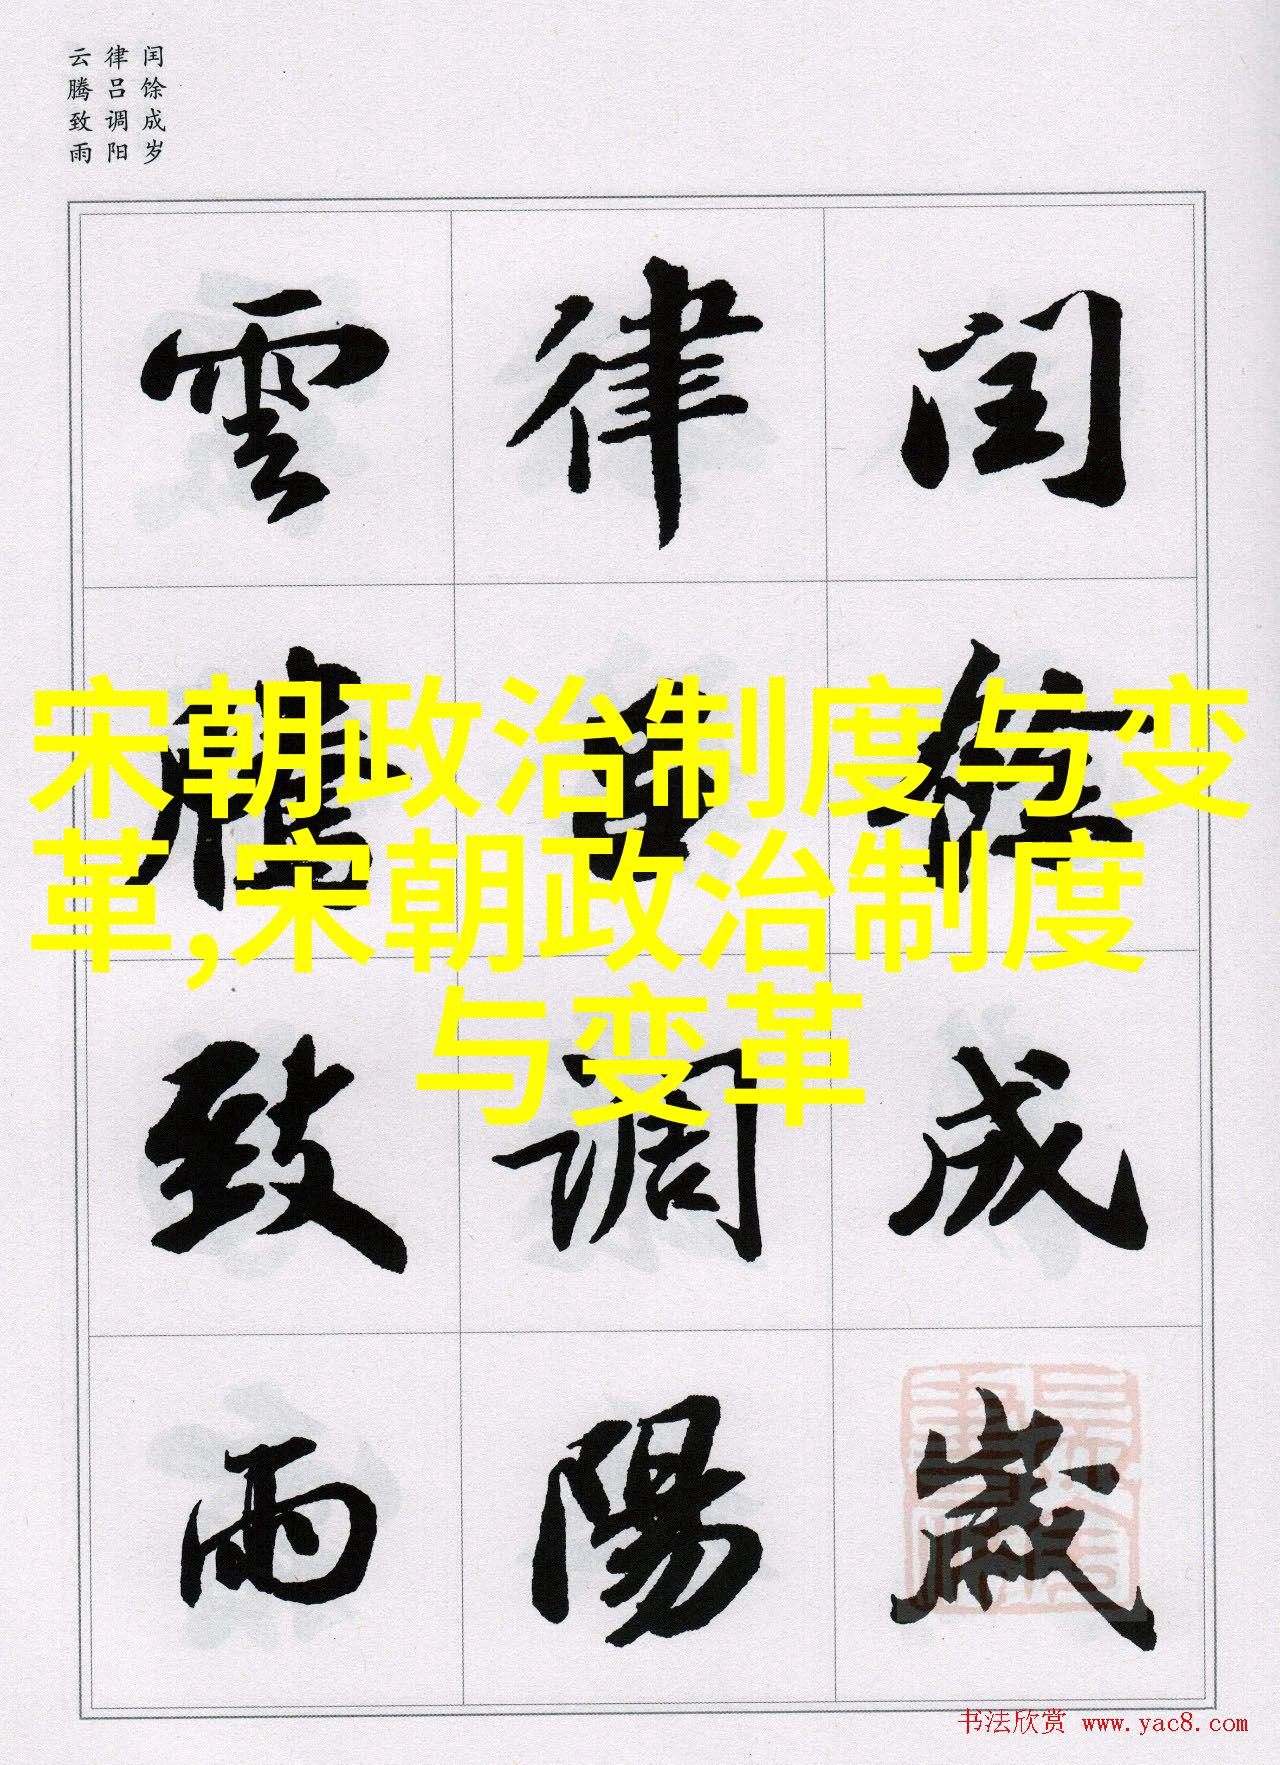 闰馀成岁
律吕调阳
云腾致雨
闰馀成歲
律吕調陽
雲騰致雨
宋朝政治制度与变
革,宋朝政治制度
与变革
书法欣赏 www.yac8.com